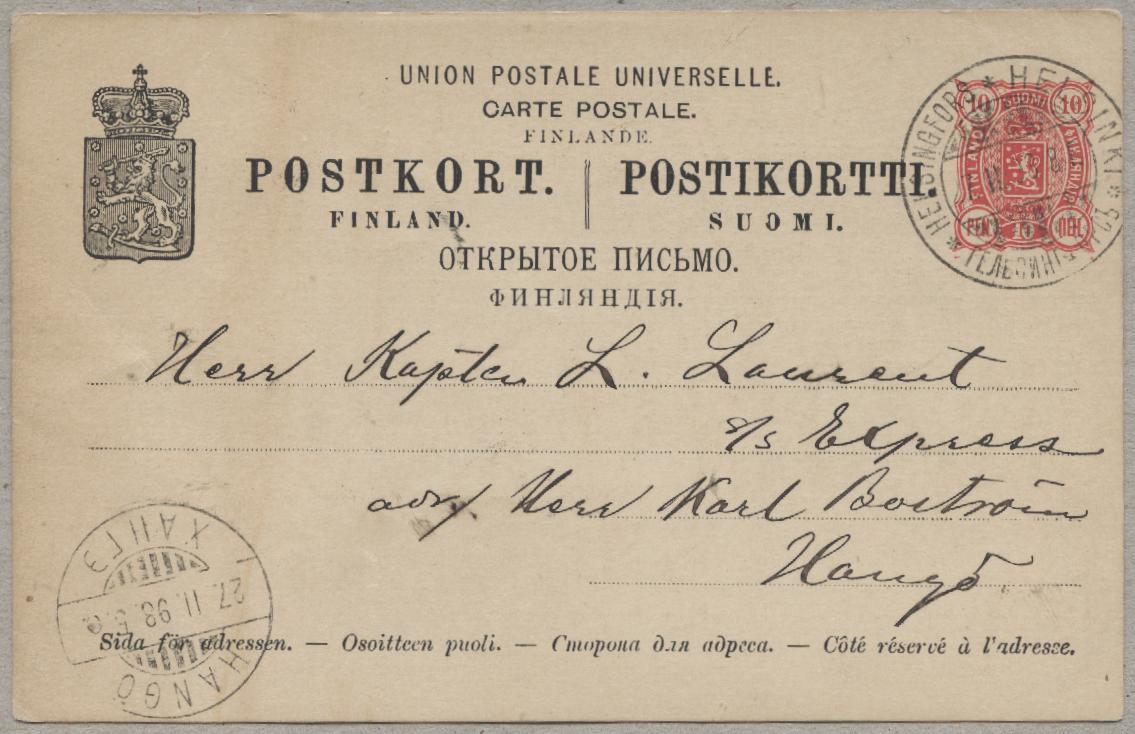 UNION POSTALE UNIVERSELLE.
CARTE POSTALE.
FINLANDE.
POSTKORT. POSTIKORTTI.
FINLAND. SUOMI.
ОТКРЫТОЕ ПИСЬМО.
ФИНЛЯНДІЯ.
HELSINGFORS * HELSINKI *
10 SUOMI 10
FINLAND
PEN 10 ПЕН.
Herr Kapten L. Laurent
s/s Express
adr/ Herr Karl Boström
Hangö
ХАНГЭ
27. II. 98.
HANGÖ
Sida för adressen. — Osoitteen puoli. — Сторона для адреса. — Côté réservé à l'adresse.